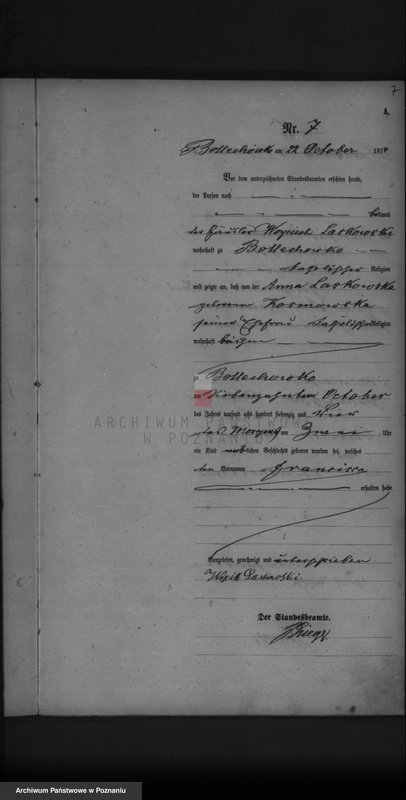 7
A.
Nr. 7
Bollechowko am 22 October 1874
Vor dem unterzeichneten Standesbeamten erschien heute,
der Person nach
bekannt
der Häusler Woyciech Laskowski
wohnhaft zu Bollechowko
katholischer Religion
und zeigte an, daß von der Anna Laskowska
geborenen Kosmowska
seiner Ehefrau katholischer Religion
wohnhaft bei ihm
zu Bollechowko
am Siebenzehnten October
des Jahres tausend acht hundert siebenzig und Vier
Morgens um Zwei Uhr
ein Kind weiblichen Geschlechts geboren worden sei, welches
den Vornamen Francisca
erhalten habe
Vorgelesen, genehmigt und unterschrieben
Der Standesbeamte.
ARCHIWUM PAŃSTWOWE
W POZNANIU
Archiwum Państwowe w Poznaniu